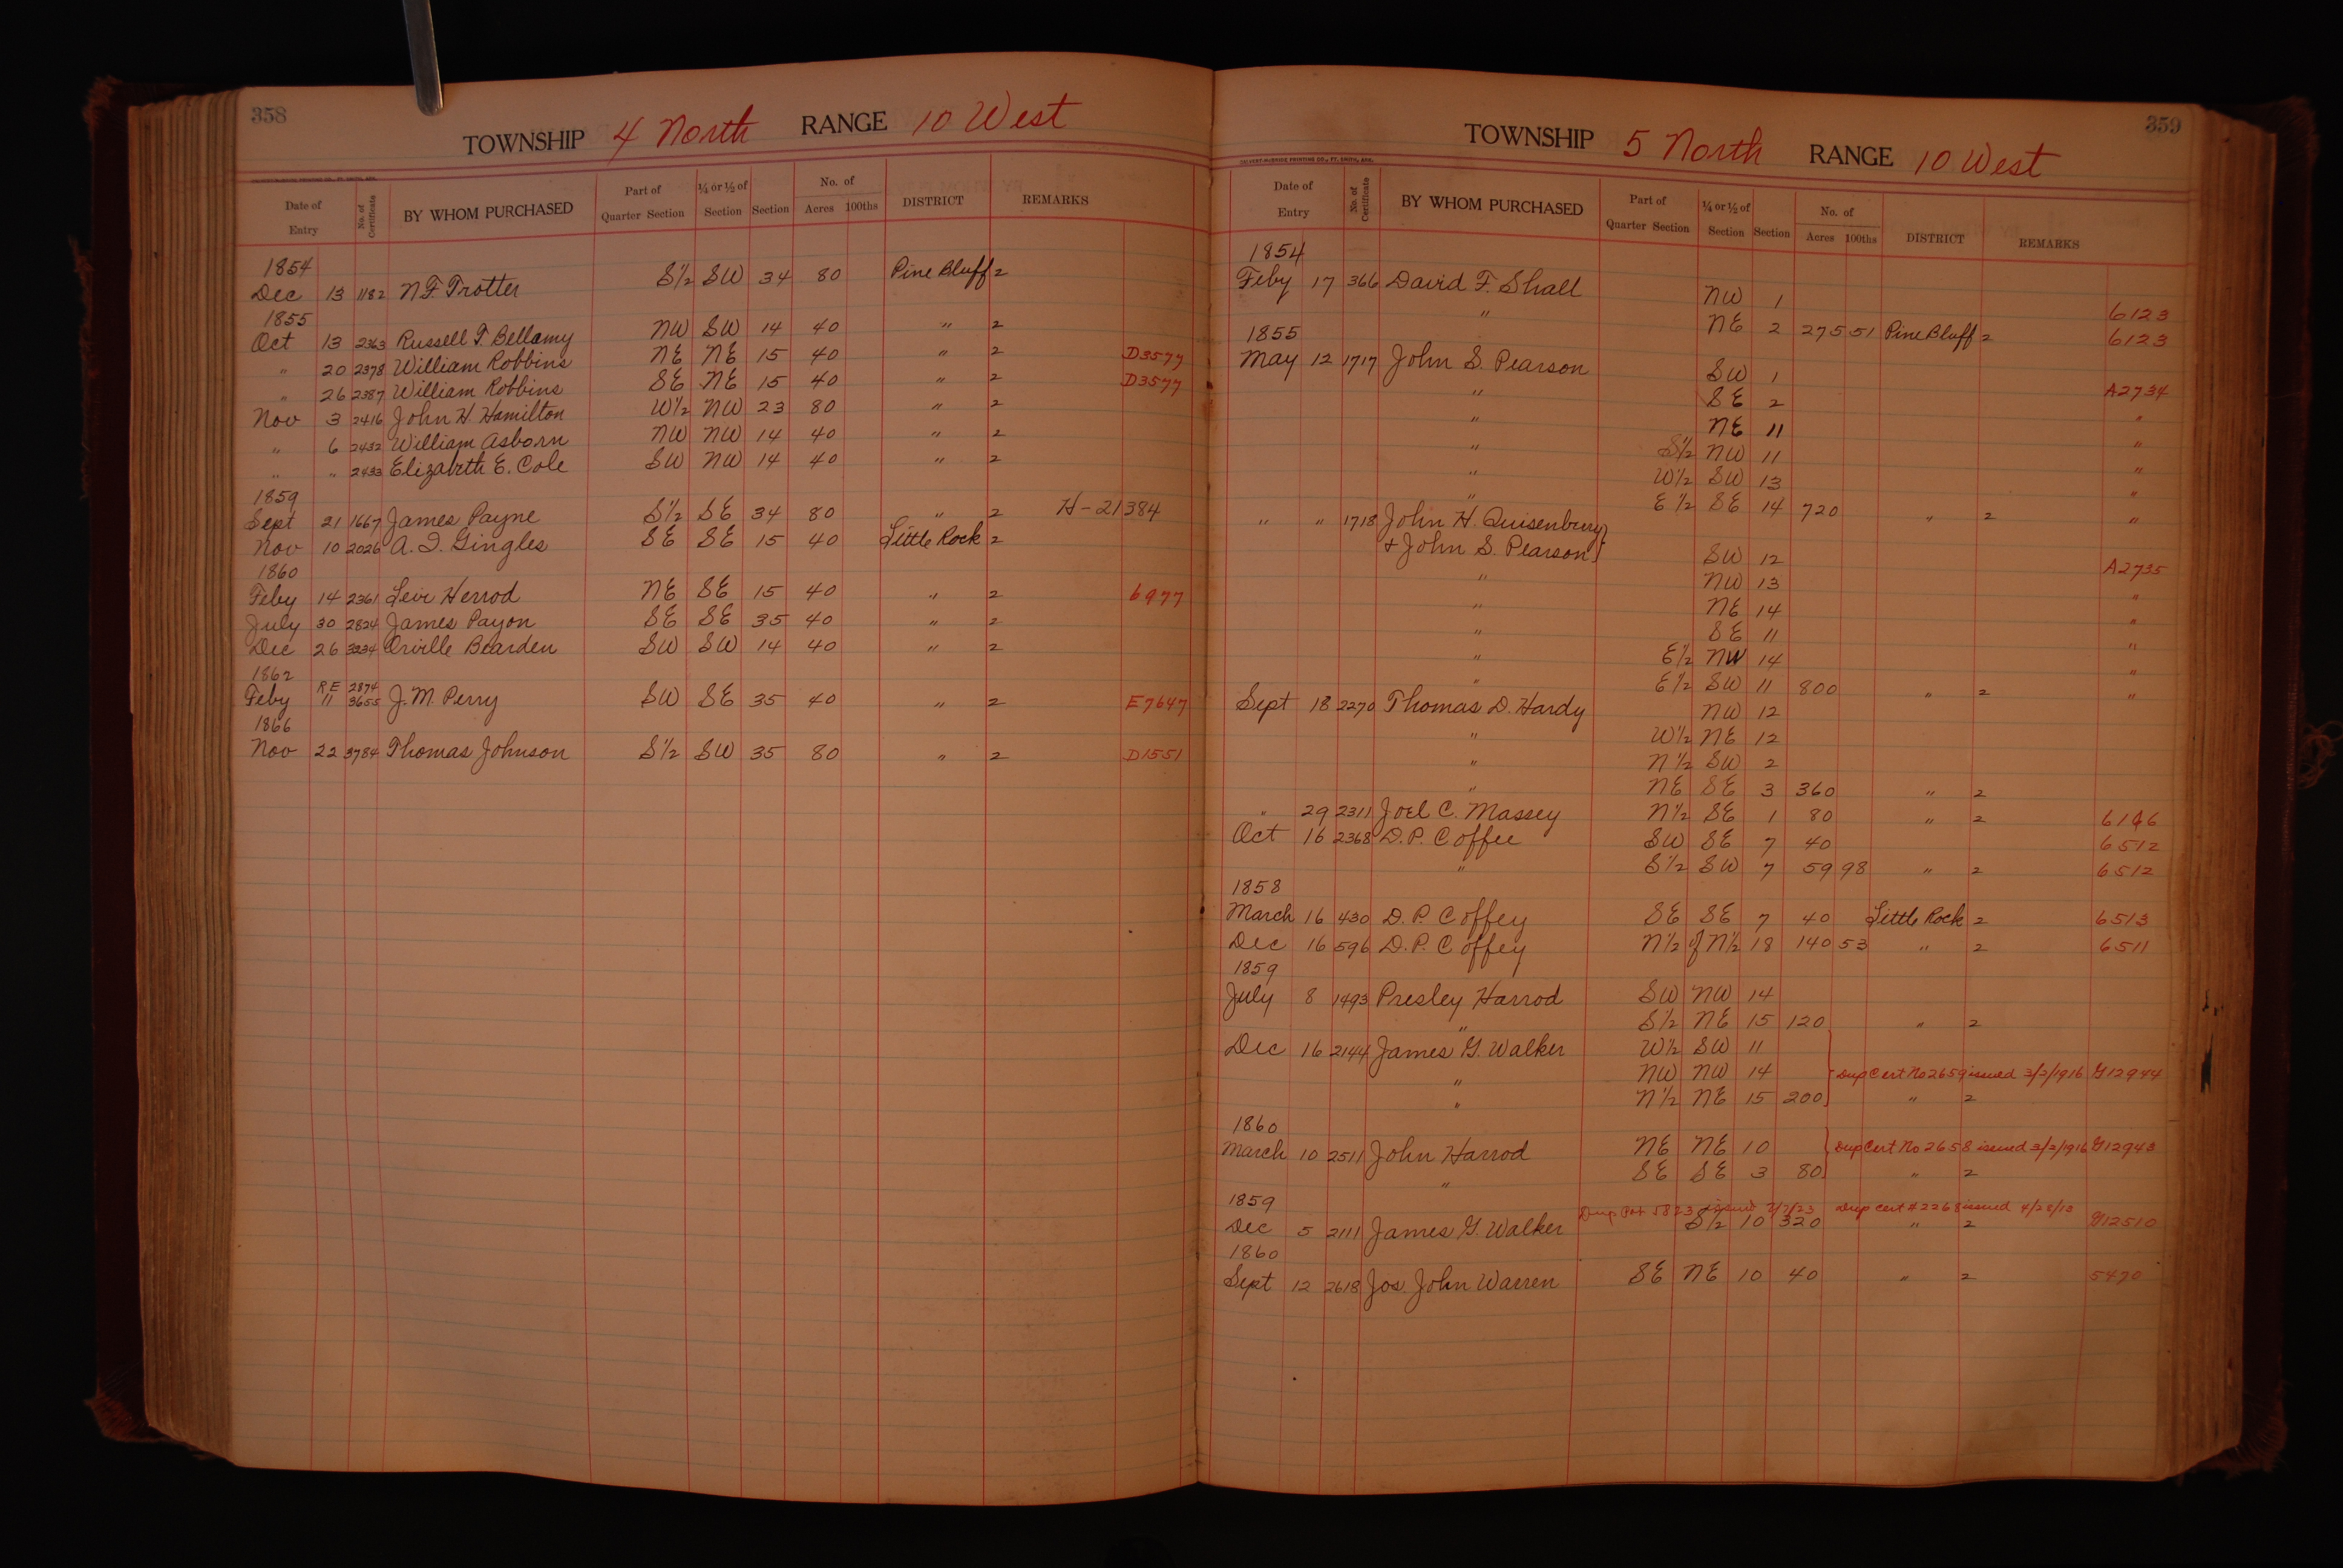 358
TOWNSHIP 4 North RANGE 10 West
Date of Entry No. of Certificate BY WHOM PURCHASED Part of Quarter Section ¼ or ½ of Section Section No. of Acres 100ths DISTRICT REMARKS
1854
Dec 13 1182 N.F. Trotter S½ SW 34 80 Pine Bluff 2
1855
Oct 13 2363 Russell T. Bellamy NW SW 14 40 " 2
" 20 2378 William Robbins NE NE 15 40 " 2 D3577
" 26 2387 William Robbins SE NE 15 40 " 2 D3577
Nov 3 2416 John H. Hamilton W½ NW 23 80 " 2
" 6 2432 William Asborn NW NW 14 40 " 2
" " 2433 Elizabeth E. Cole SW NW 14 40 " 2
1859
Sept 21 1667 James Payne S½ SE 34 80 " 2 H-21384
Nov 10 2026 A. I. Gingles SE SE 15 40 Little Rock 2
1860
Feby 14 2361 Levi Herrod NE SE 15 40 " 2 6977
July 30 2824 James Payon SE SE 35 40 " 2
Dec 26 3234 Orville Bearden SW SW 14 40 " 2
1862
R E 2874
Feby 11 3655 J. M. Perry SW SE 35 40 " 2 E7647
1866
Nov 22 3784 Thomas Johnson S½ SW 35 80 " 2 D1551
359
TOWNSHIP 5 North RANGE 10 West
CALVERT-McBRIDE PRINTING CO., FT. SMITH, ARK.
Date of Entry No. of Certificate BY WHOM PURCHASED Part of Quarter Section ¼ or ½ of Section Section No. of Acres 100ths DISTRICT REMARKS
1854
Feby 17 366 David F. Shall NW 1 6123
" NE 2 275 51 Pine Bluff 2 6123
1855
May 12 1717 John S. Pearson SW 1 A2734
" SE 2 "
" NE 11 "
" S½ NW 11 "
" W½ SW 13 "
" E½ SE 14 720 " 2 "
" " 1718 John H. Quisenbury
& John S. Pearson SW 12 A2735
" NW 13 "
" NE 14 "
" SE 11 "
" E½ NW 14 "
" E½ SW 11 800 " 2 "
Sept 18 2270 Thomas D. Hardy NW 12
" W½ NE 12
" N½ SW 2
" NE SE 3 360 " 2
" 29 2311 Joel C. Massey N½ SE 1 80 " 2 6166
Oct 16 2368 D. P. Coffee SW SE 7 40 6512
" S½ SW 7 59 98 " 2 6512
1858
March 16 430 D. P. Coffey SE SE 7 40 Little Rock 2 6513
Dec 16 596 D. P. Coffey N½ of N½ 18 140 53 " 2 6511
1859
July 8 1493 Presley Harrod SW NW 14
" S½ NE 15 120 " 2
Dec 16 2144 James G. Walker W½ SW 11
" NW NW 14 Dup Cert No 2659 issued 3/2/1916 G12944
" N½ NE 15 200 " 2
1860
March 10 2511 John Harrod NE NE 10 Dup Cert No 2658 issued 3/2/1916 G12943
" SE SE 3 80 " 2
1859 Dup Pat 5823 issued 7/7/23 Dup cert # 2268 issued 4/28/13
Dec 5 2111 James G. Walker S½ 10 320 " 2 G12510
1860
Sept 12 2618 Jos. John Warren SE NE 10 40 " 2 5470